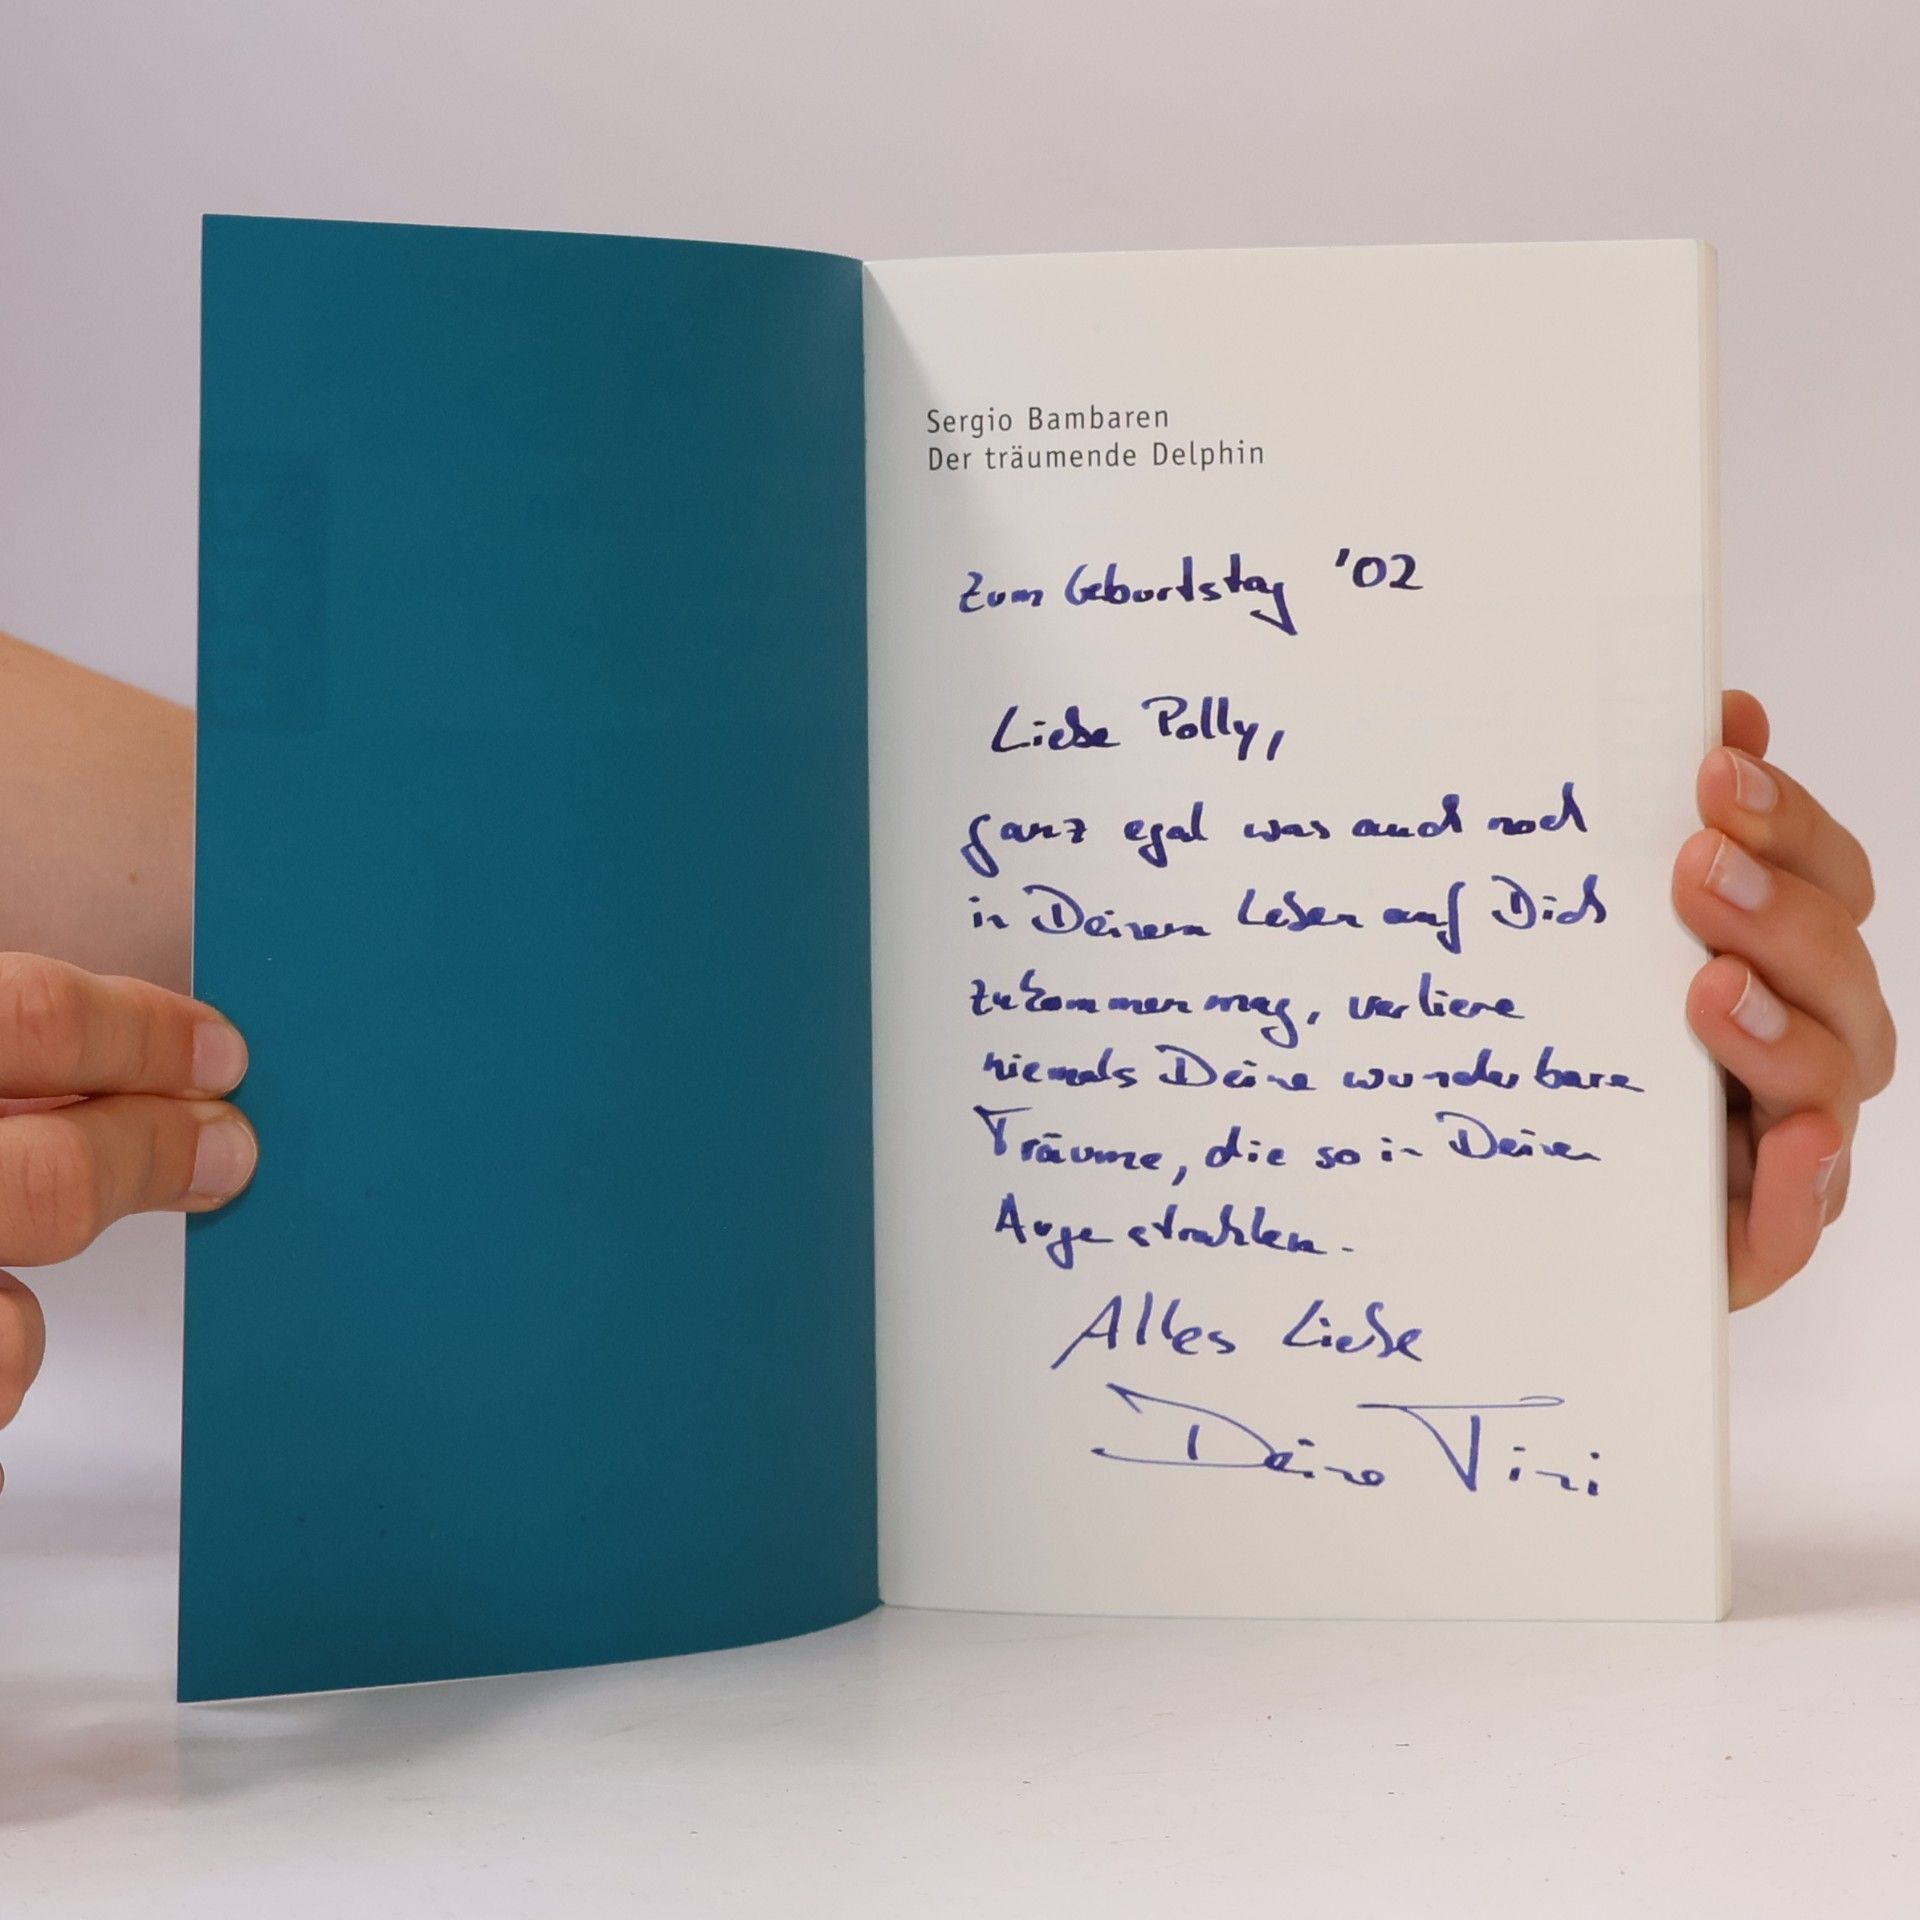 Sergio Bambaren
Der träumende Delphin
Zum Geburtstag '02
Liebe Polly,
ganz egal was auch noch
in Deinem Leben auf Dich
zukommen mag, verliere
niemals Deine wunderbare
Träume, die so in Deinen
Auge strahlen.
Alles Liebe
Deine Tini